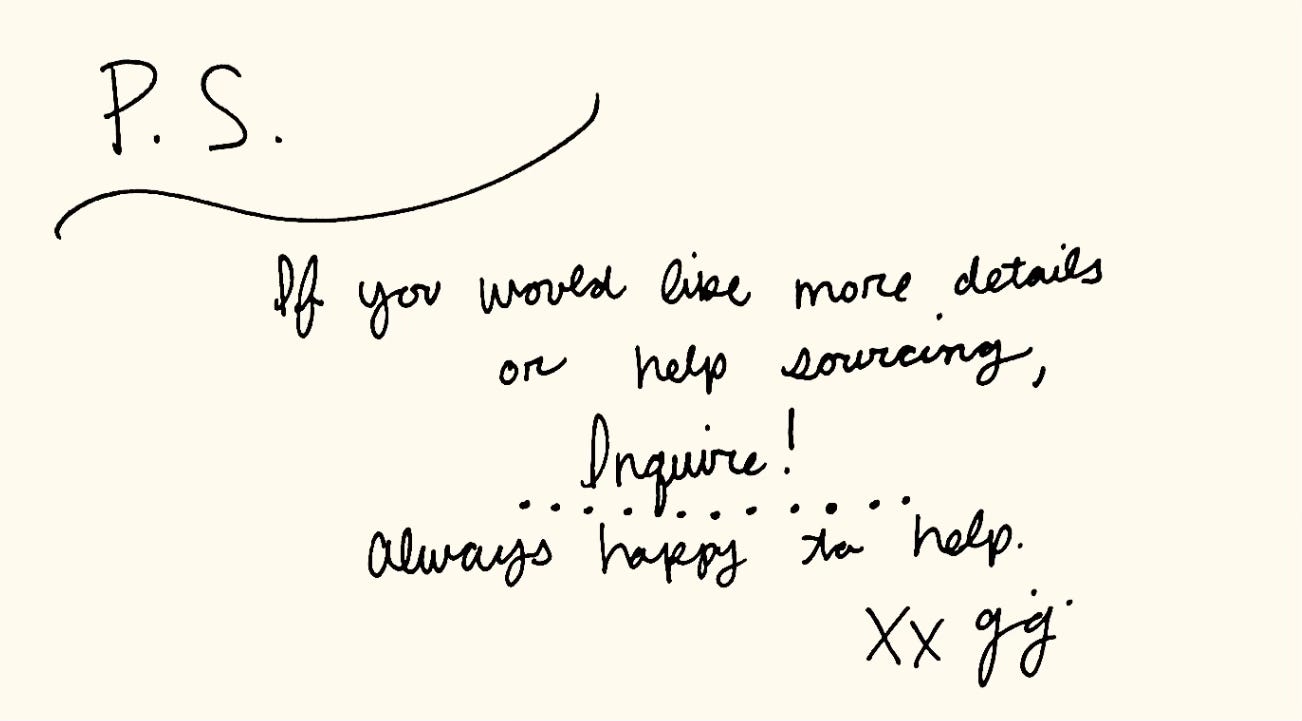 P.S.
If you would like more details
or help sourcing,
Inquire!
always happy to help.
Xx